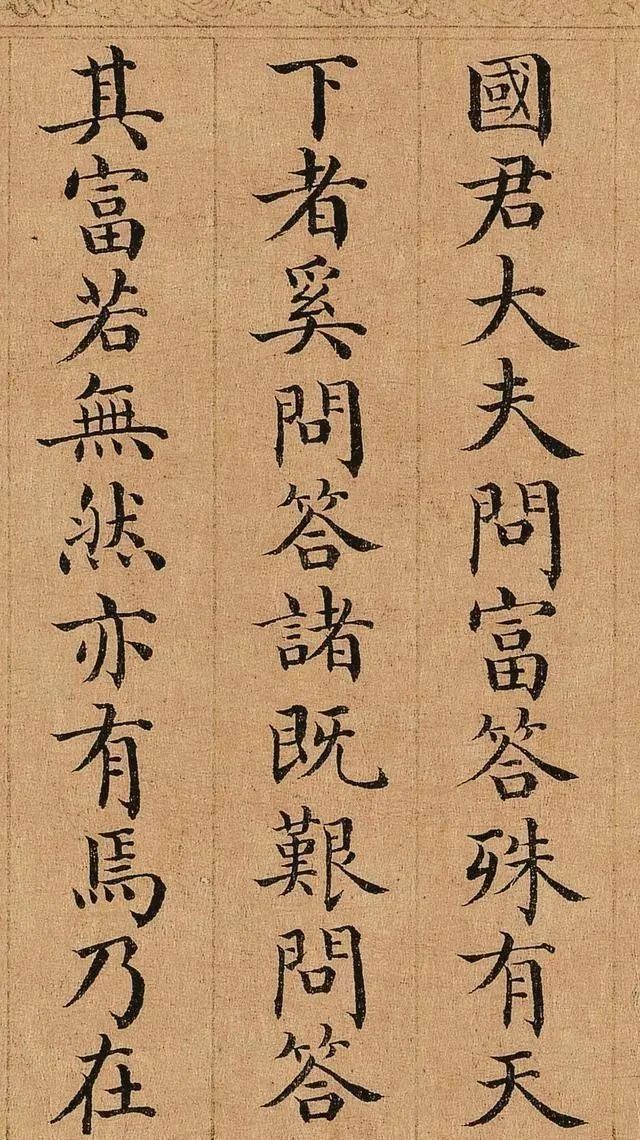 國君大夫問富答殊有天
下者奚問答諸既艱問答
其富若無然亦有焉乃在